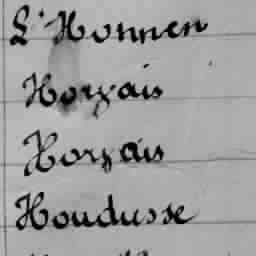 L'Honnen
Horvais
Horvais
Houdusse